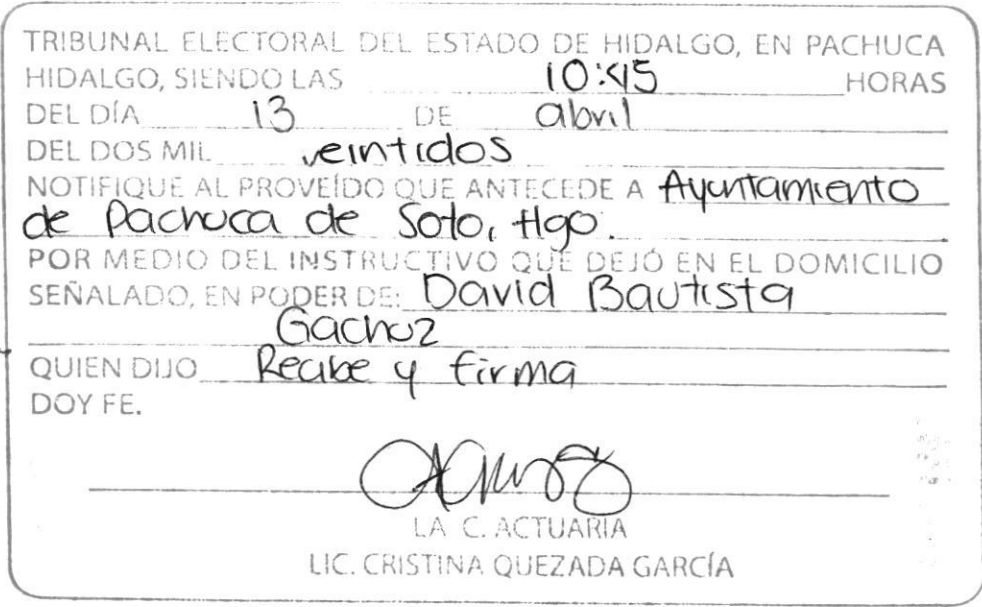 TRIBUNAL ELECTORAL DEL ESTADO DE HIDALGO, EN PACHUCA
HIDALGO, SIENDO LAS 10:45 HORAS
DEL DÍA 13 DE abril
DEL DOS MIL veintidos
NOTIFIQUE AL PROVEÍDO QUE ANTECEDE A Ayuntamiento
de Pachuca de Soto, Hgo.
POR MEDIO DEL INSTRUCTIVO QUE DEJÓ EN EL DOMICILIO
SEÑALADO, EN PODER DE: David Bautista
Gachuz
QUIEN DIJO Recibe y firma
DOY FE.
LA C. ACTUARIA
LIC. CRISTINA QUEZADA GARCÍA